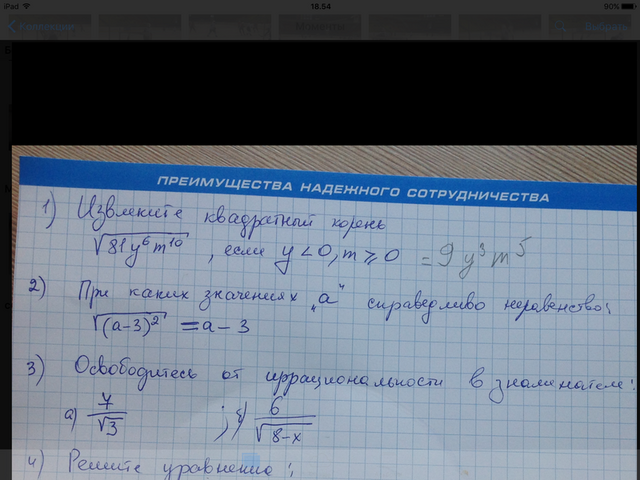 iPad
16.54
90%
ПРЕИМУЩЕСТВА НАДЕЖНОГО СОТРУДНИЧЕСТВА
1) Извлеките квадратный корень
√81y⁶m¹⁰ , если y < 0, m ⩾ 0 = 9 y³ m⁵
2) При каких значениях „а" справедливо неравенство:
√(a-3)² = a - 3
3) Освободитесь от иррациональности в знаменателе:
а) 7/√3 ; б) 6/√8-x
4) Решите уравнение: